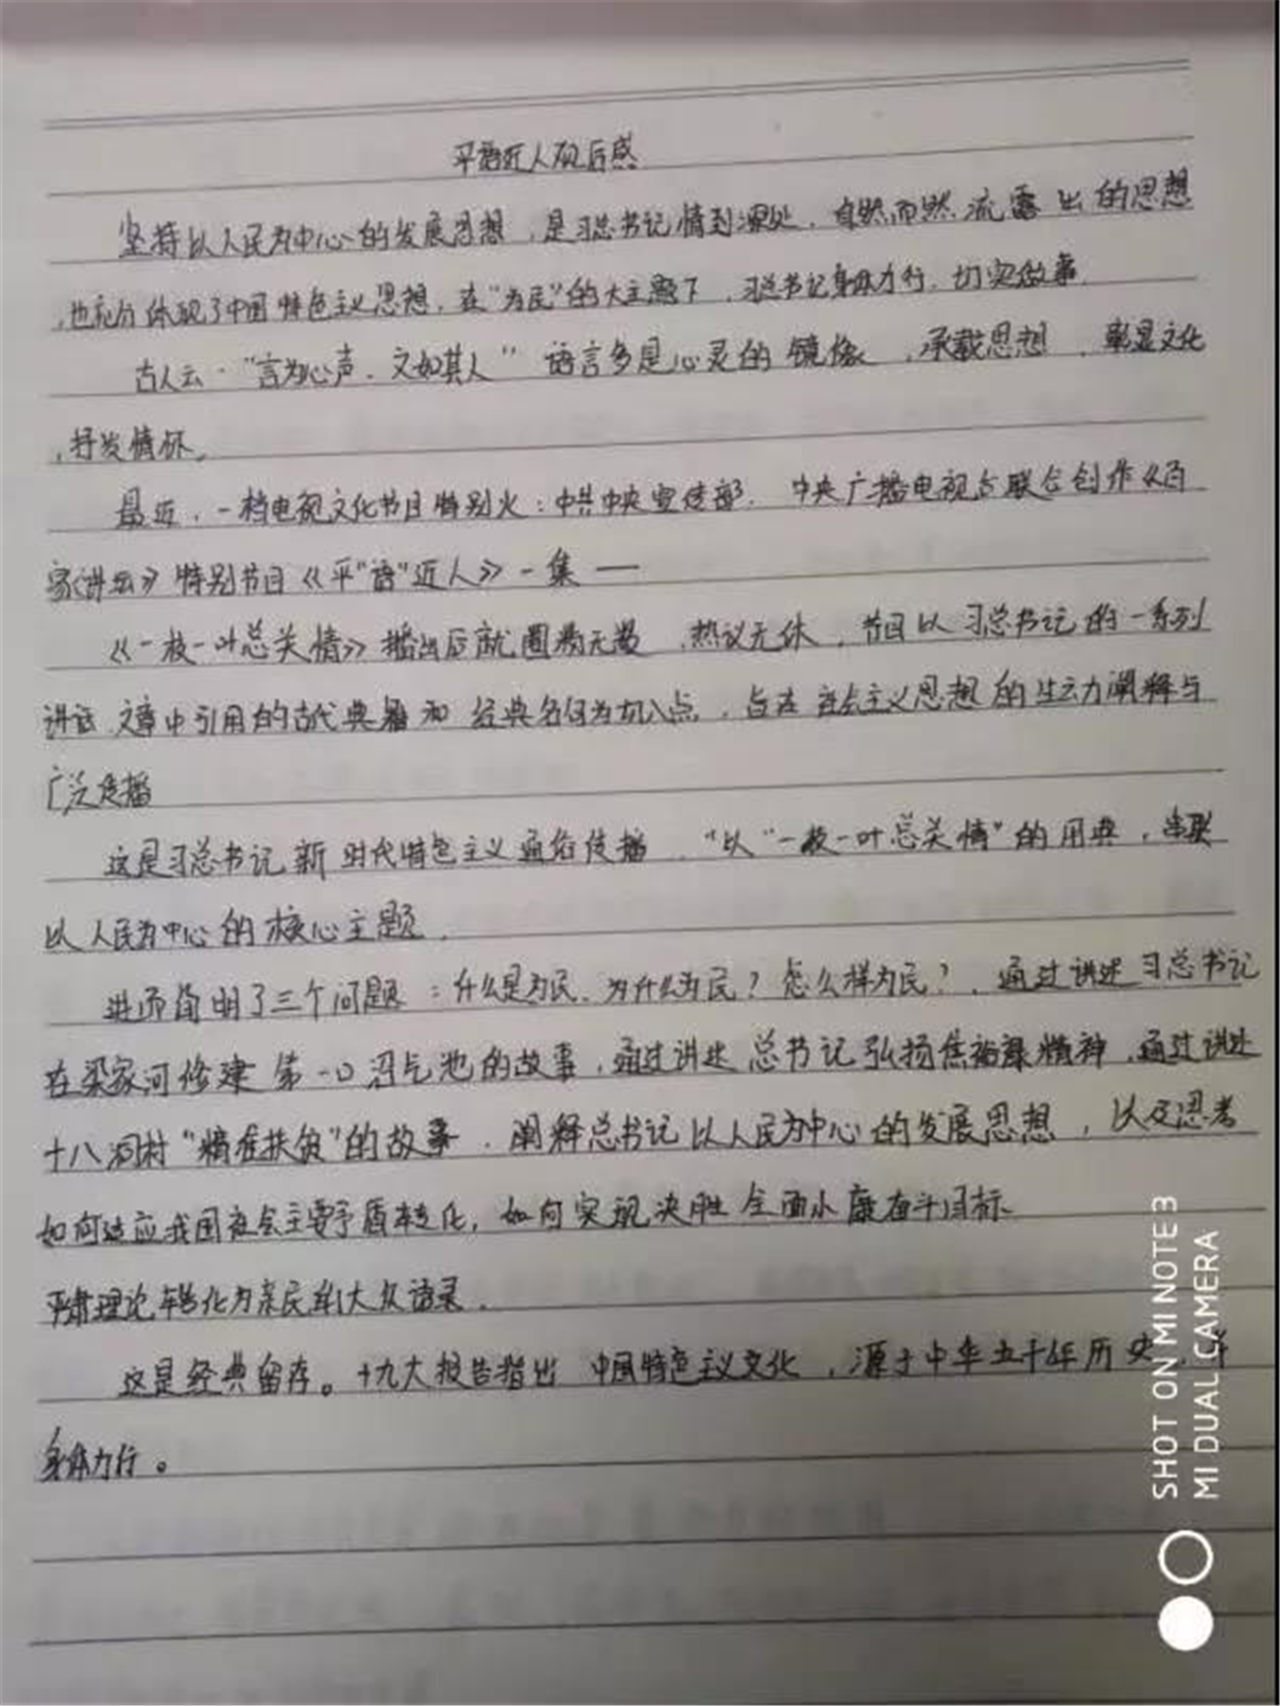 平语近人观后感
坚持以人民为中心的发展思想，是习总书记情到深处，自然而然流露出的思想
，也充分体现了中国特色主义思想，在“为民”的大主题下，习总书记身体力行，切实做事.
古人云·“言为心声，文如其人”语言多是心灵的镜像，承载思想，彰显文化
，抒发情怀。
最近，一档电视文化节目特别火：中共中央宣传部，中央广播电视台联合创作《百
家讲坛》特别节目《平“语”近人》一集——
《一枝一叶总关情》播出后就圈粉无数，热议无休，节目以习总书记的一系列
讲话、文章中引用的古代典籍和经典名句为切入点，旨在社会主义思想的生动阐释与
广泛传播
这是习总书记新时代特色主义通俗传播，“以“一枝一叶总关情”的用典，串联
以人民为中心的核心主题.
进而阐明了三个问题：什么是为民、为什么为民？怎么样为民？，通过讲述习总书记
在梁家河修建第一口沼气池的故事，通过讲述总书记弘扬焦裕禄精神，通过讲述
十八洞村“精准扶贫”的故事，阐释总书记以人民为中心的发展思想，以及思考
如何适应我国社会主要矛盾转化，如何实现决胜全面小康奋斗目标
严肃理论转化为亲民和大众语录.
这是经典留存。十九大报告指出中国特色主义文化，源于中华五千年历史，并
身体力行。
SHOT ON MI NOTE 3
MI DUAL CAMERA